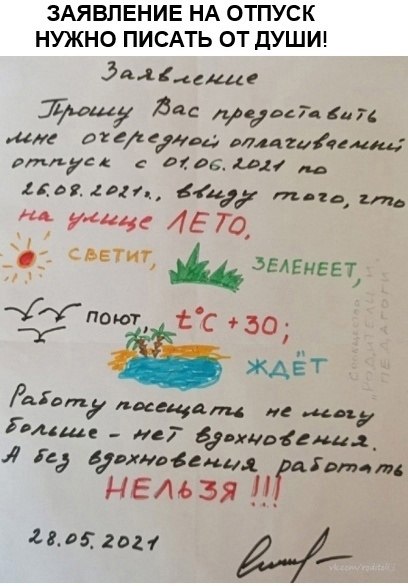 ЗАЯВЛЕНИЕ НА ОТПУСК
НУЖНО ПИСАТЬ ОТ ДУШИ!
Заявление
Прошу Вас предоставить
мне очередной оплачиваемый
отпуск с 01.06.2021 по
26.08.2021г., ввиду того, что
на улице ЛЕТО,
СВЕТИТ,
ЗЕЛЕНЕЕТ,
поют, t°C +30;
ЖДЁТ
Работу посещать не могу
больше - нет вдохновения.
А без вдохновения работать
НЕЛЬЗЯ !!!
28.05.2021
Сообщество
"РОДИТЕЛИ И
ПЕДАГОГИ"